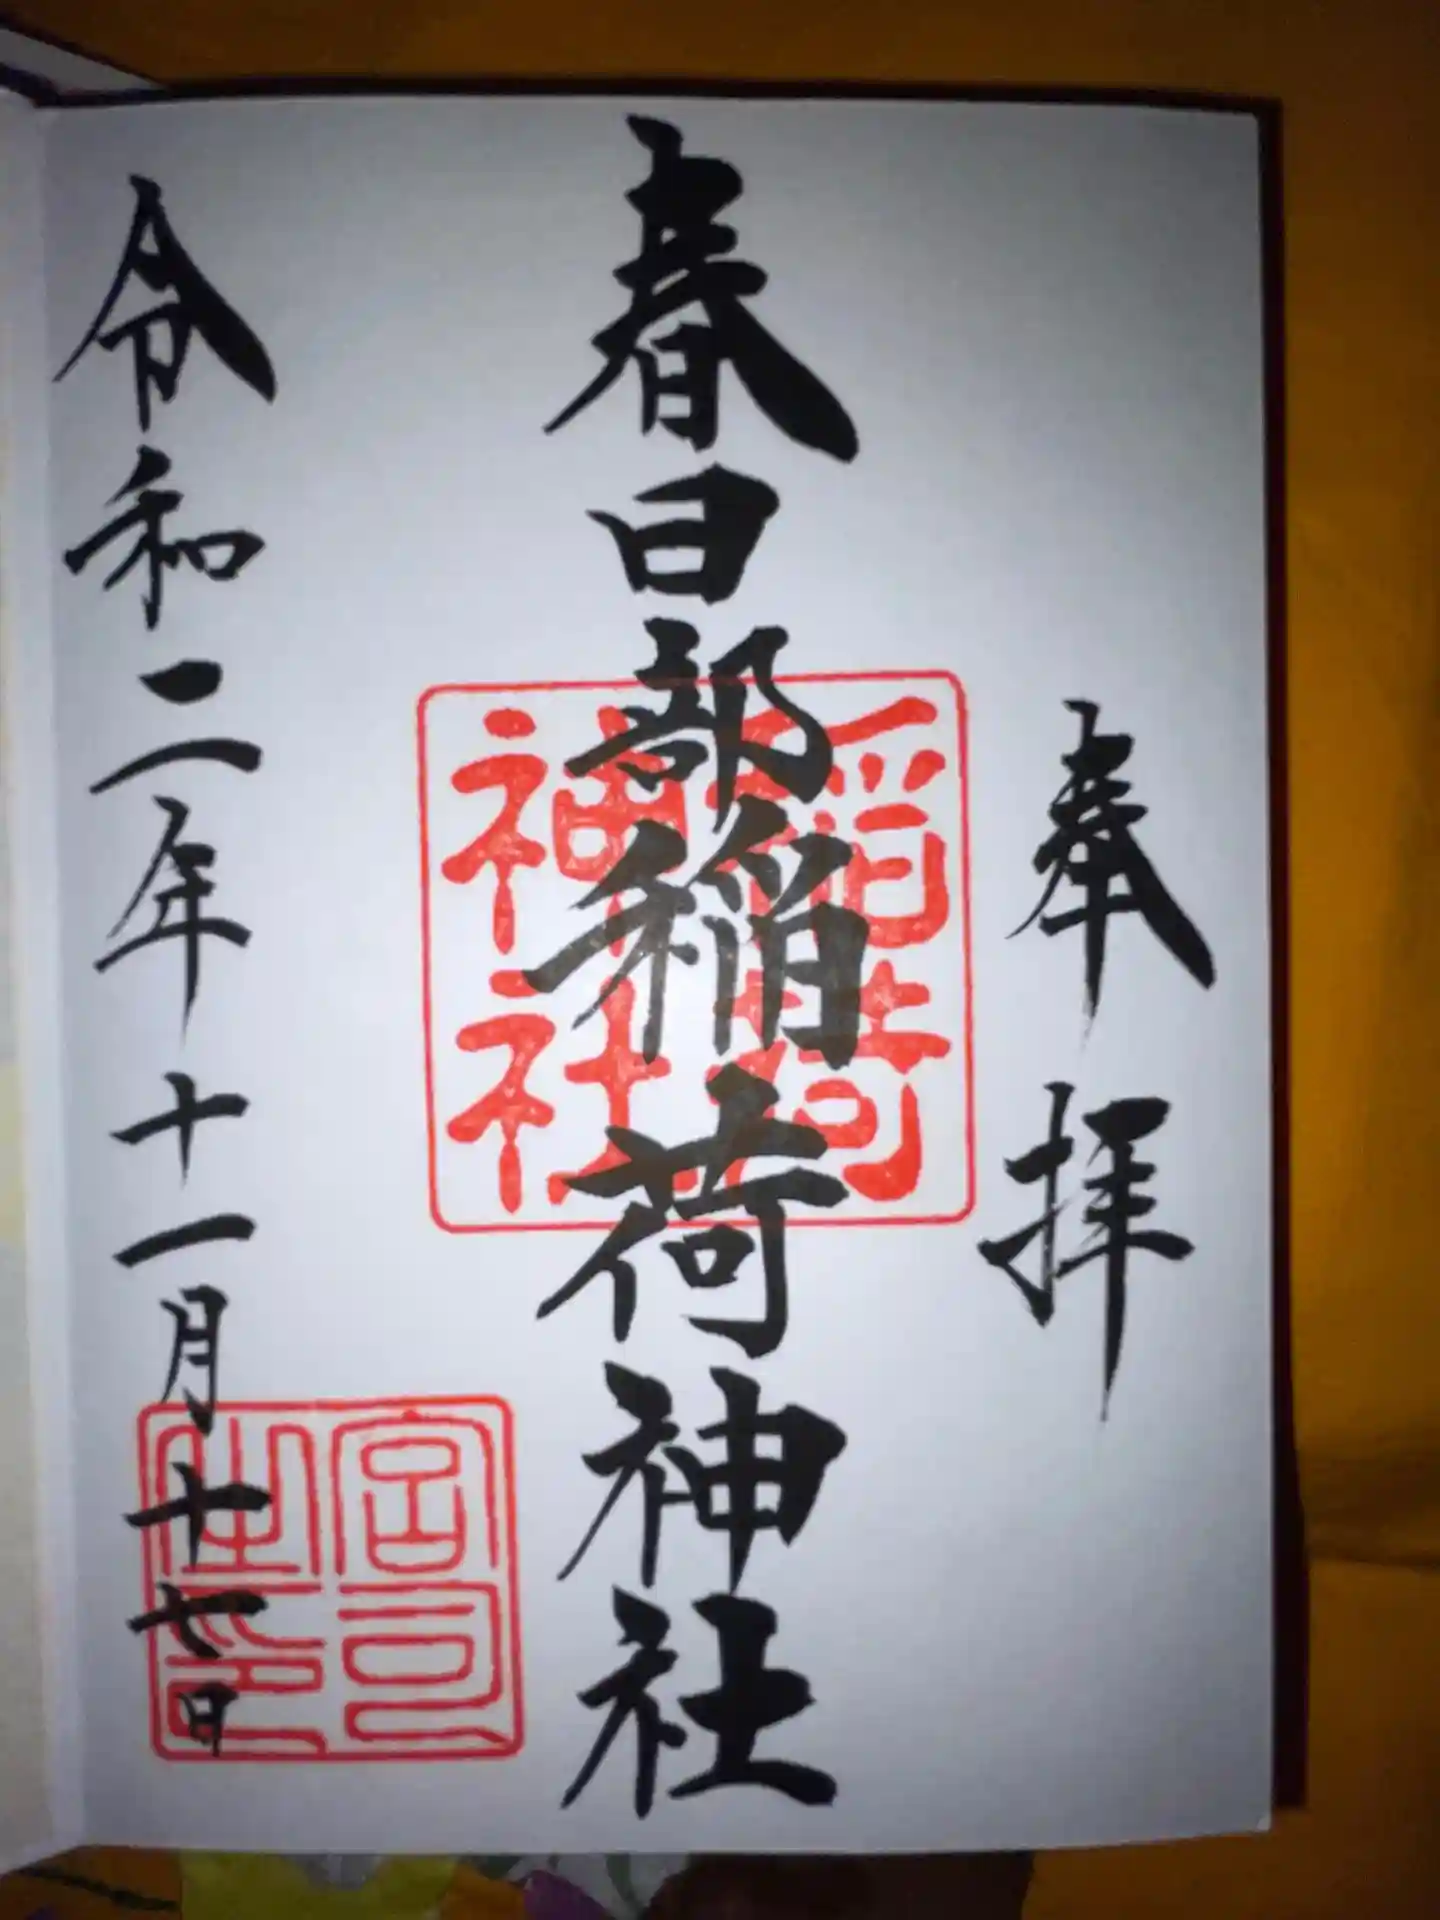 奉拝
春日部稲荷神社
令和二年十一月十七日
稲荷
神社
宮司
之印